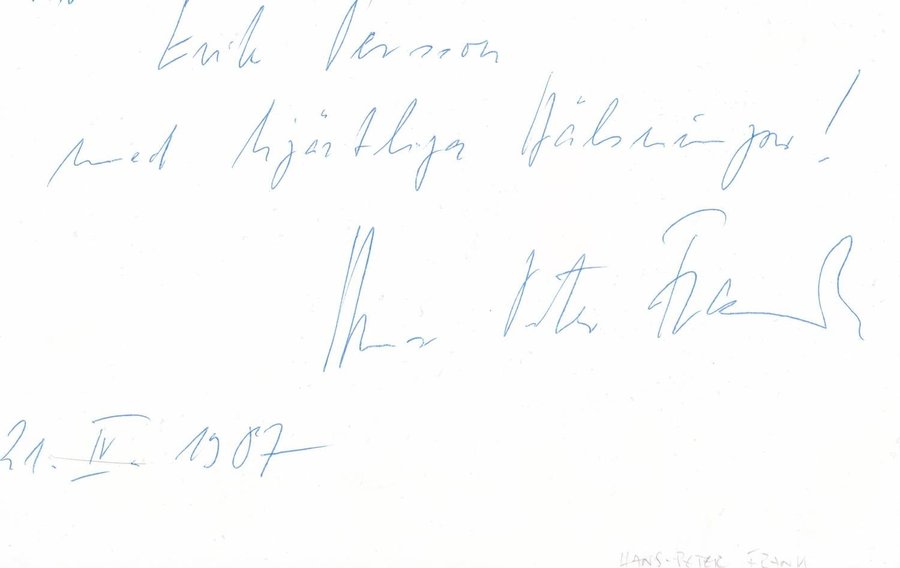 Erik Persson
med hjärtliga Hälsningar!
Hans Peter Frank
21. IV. 1987
HANS-PETER FRANK